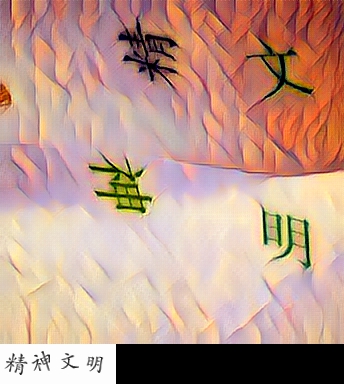 精
文
神
明
精神文明